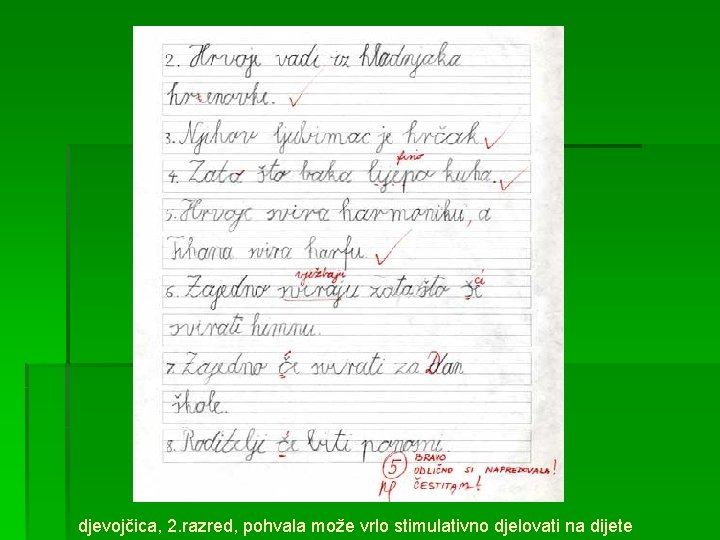 2. Hrvoje vadi iz hladnjaka
hrenovke.
3. Njihov ljubimac je hrčak
fino
4. Zato što baka ljepo kuha.
5. Hrvoje svira harmoniku, a
Tihana svira harfu
vježbaju
6. Zajedno sviraju zato što će
svirati himnu.
7. Zajedno će svirati za Dan
škole.
8. Roditelji če biti ponosni.
5 BRAVO
ODLIČNO SI NAPREDOVALA!
ČESTITAM!
djevojčica, 2. razred, pohvala može vrlo stimulativno djelovati na dijete